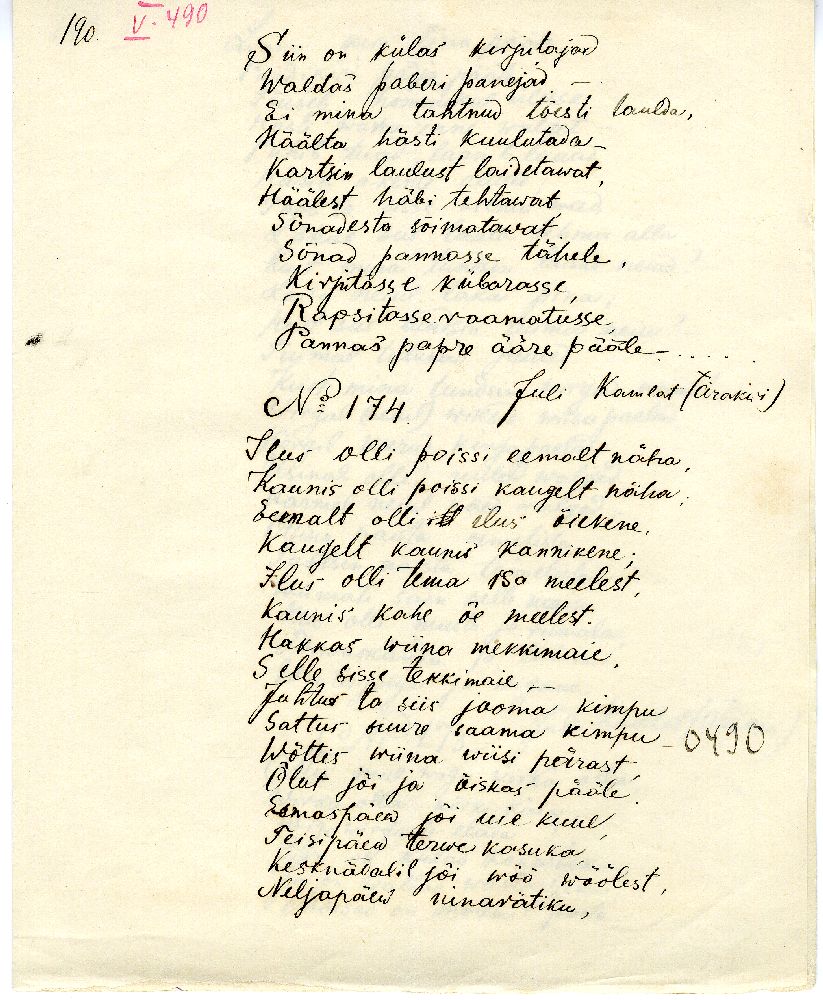 190. V. 490
Siin on külas kirjutajad
Waldas paberi panejad —
Ei mina tahtnud tõesti laulda,
Häälta hästi kuulutada —
Kartsin laulust laidetawat,
Häälest häbi tehtawat
Sõnadesta sõimatawat
Sõnad pannasse tähele,
Kirjutasse kübarasse,
Rapsitasse raamatusse,
Pannas papre ääre pääle — . . . . .
Juli Kamlat (Ärakiri)
No 174.
Ilus olli poissi eemalt näha,
Kaunis olli poissi kaugelt näha,
Eemalt olli ilus õiekene,
Kaugelt kaunis kannikene;
Ilus olli tema isa meelest,
Kaunis kahe õe meelest.
Hakkas wiina mekkimaie,
Selle sisse tekkimaie —
Juhtus ta siis jooma kimpu
Sattus suure saama kimpu —
0490
Wõttis wiina wiisi pärast,
Õlut jõi ja õiskas pääle.
Esmaspäew jõi uie kuue,
Teisipäew terwe kasuka,
Kesknädalil jõi wöö wöölest,
Neljapäew ninarätiku,